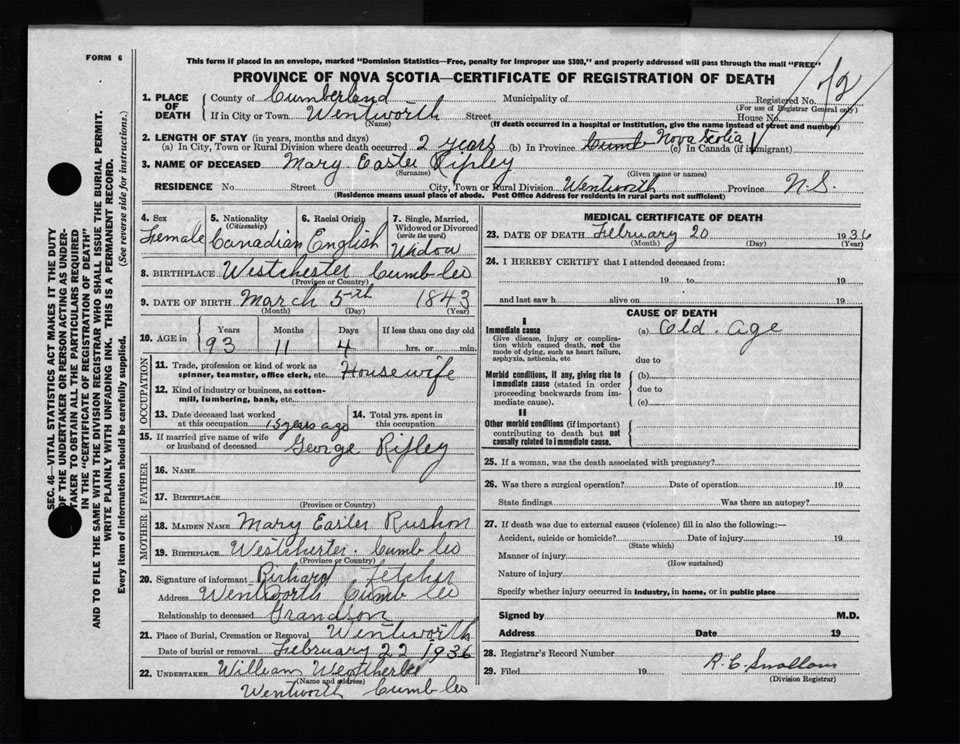 FORM 6
This form if placed in an envelope, marked "Dominion Statistics—Free, penalty for improper use $300," and properly addressed will pass through the mail "FREE"
PROVINCE OF NOVA SCOTIA—CERTIFICATE OF REGISTRATION OF DEATH
SEC. 46—VITAL STATISTICS ACT MAKES IT THE DUTY
OF THE UNDERTAKER OR PERSON ACTING AS UNDER-
TAKER TO OBTAIN ALL THE PARTICULARS REQUIRED
IN THE "CERTIFICATE OF REGISTRATION OF DEATH"
AND TO FILE THE SAME WITH THE DIVISION REGISTRAR WHO SHALL ISSUE THE BURIAL PERMIT.
WRITE PLAINLY WITH UNFADING INK. THIS IS A PERMANENT RECORD.
Every item of information should be carefully supplied. (See reverse side for instructions.)
1. PLACE OF DEATH County of Cumberland Municipality of Registered No. 12
(For use of Registrar General only)
If in City or Town Wentworth Street House No.
(Name) (If death occurred in a hospital or institution, give the name instead of street and number)
2. LENGTH OF STAY (in years, months and days)
(a) In City, Town or Rural Division where death occurred 2 years (b) In Province Cumb Nova Scotia (c) In Canada (if immigrant)
3. NAME OF DECEASED Mary Easter Ripley
(Surname) (Given name or names)
RESIDENCE No. Street City, Town or Rural Division Wentworth Province N.S.
(Residence means usual place of abode. Post Office Address for residents in rural parts not sufficient)
4. Sex 5. Nationality (Citizenship) 6. Racial Origin 7. Single, Married, Widowed or Divorced (write the word)
Female Canadian English Widow
8. BIRTHPLACE Westchester Cumb Co
(Province or Country)
9. DATE OF BIRTH March 5th 1843
(Month) (Day) (Year)
10. AGE in Years Months Days If less than one day old
93 11 4 hrs. or min.
OCCUPATION
11. Trade, profession or kind of work as spinner, teamster, office clerk, etc. Housewife
12. Kind of industry or business, as cotton-mill, lumbering, bank, etc.
13. Date deceased last worked at this occupation 15 years ago 14. Total yrs. spent in this occupation
15. If married give name of wife or husband of deceased George Ripley
FATHER
16. NAME
17. BIRTHPLACE
(Province or Country)
MOTHER
18. MAIDEN NAME Mary Easter Rushon
19. BIRTHPLACE Westchester. Cumb Co
(Province or Country)
20. Signature of informant Richard Fetcher
Address Wentworth Cumb Co
Relationship to deceased Grandson
21. Place of Burial, Cremation or Removal Wentworth
Date of burial or removal February 22 1936
22. UNDERTAKER William Weatherbe
(Name and address)
Wentworth Cumb Co
MEDICAL CERTIFICATE OF DEATH
23. DATE OF DEATH February 20 1936
(Month) (Day) (Year)
24. I HEREBY CERTIFY that I attended deceased from:
19 to 19
and last saw h alive on 19
CAUSE OF DEATH
I
Immediate cause (a) Old. Age
Give disease, injury or complication which caused death, not the mode of dying, such as heart failure, asphyxia, asthenia, etc.
due to
Morbid conditions, if any, giving rise to immediate cause (stated in order proceeding backwards from immediate cause). (b)
due to
(c)
II
Other morbid conditions (if important) contributing to death but not causally related to immediate cause.
25. If a woman, was the death associated with pregnancy?
26. Was there a surgical operation? Date of operation 19
State findings Was there an autopsy?
27. If death was due to external causes (violence) fill in also the following:—
Accident, suicide or homicide? Date of injury 19
(State which)
Manner of injury
(How sustained)
Nature of injury
Specify whether injury occurred in industry, in home, or in public place
Signed by M.D.
Address Date 19
28. Registrar's Record Number
29. Filed 19 R. C. Swallow
(Division Registrar)